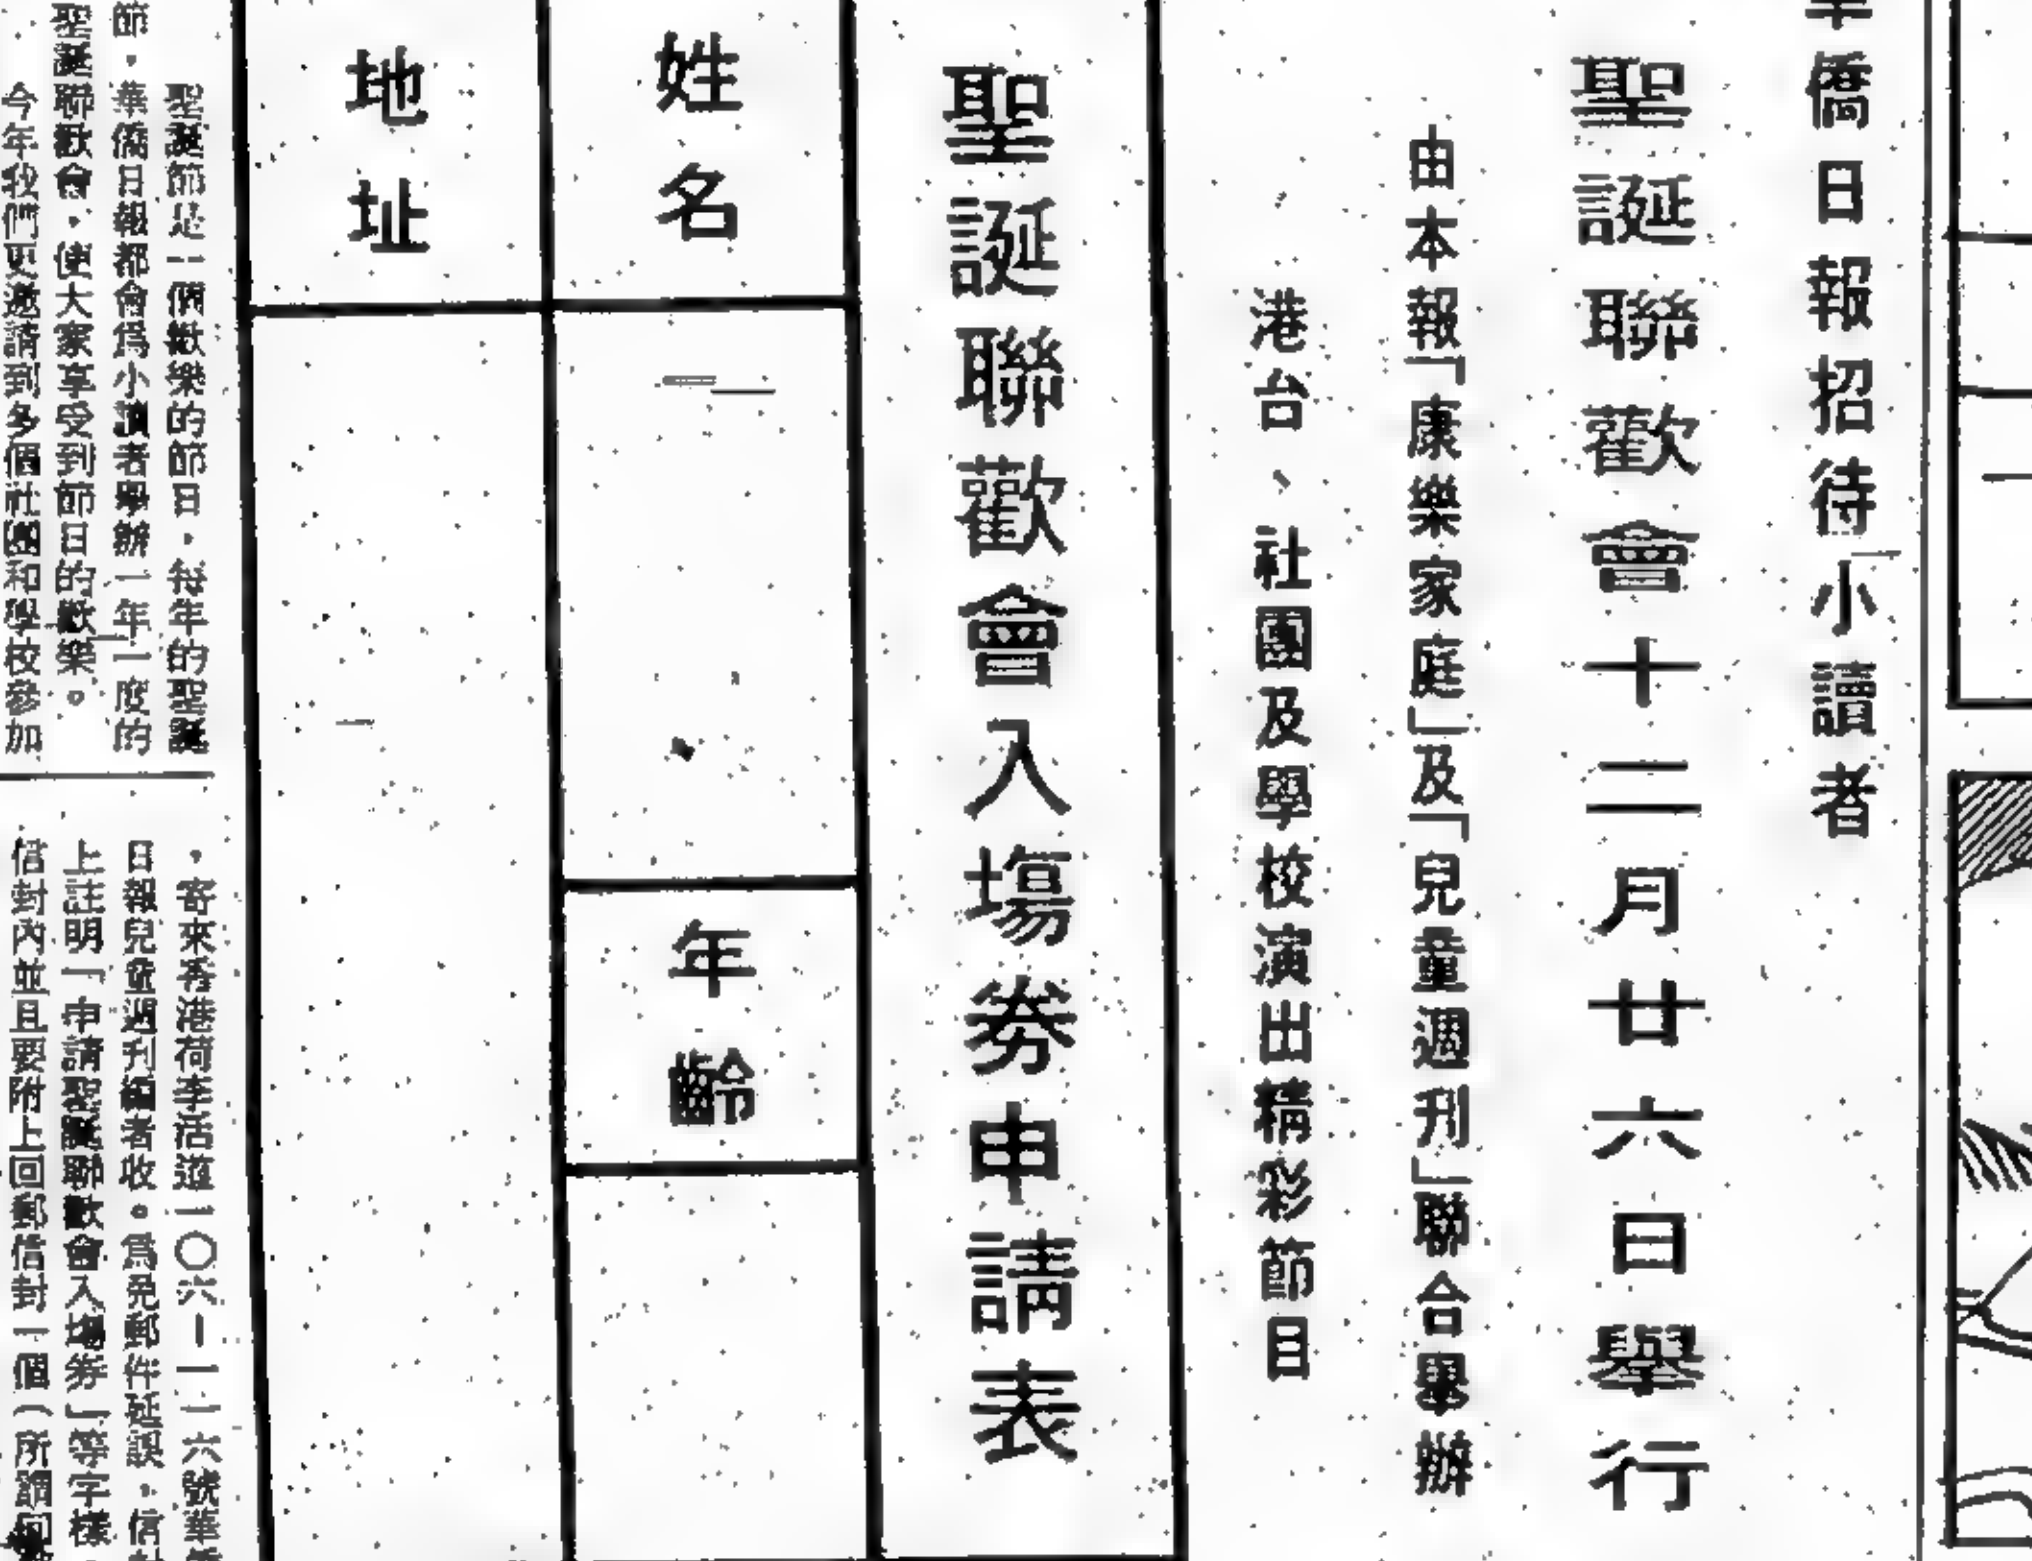 華僑日報招待小讀者
聖誕聯歡會十二月廿六日舉行
由本報「康樂家庭」及「兒童週刋」聯合舉辦
港台、社團及學校演出精彩節目
聖誕聯歡會入塲券申請表
姓名
年齡
地址
聖誕節是一個歡樂的節日，每年的聖誕
節，華僑日報都會爲小讀者舉辦一年一度的
聖誕聯歡會，使大家享受到節日的歡樂。
今年我們更邀請到多個社團和學校參加
，寄來香港荷李活道一〇六－一一六號華僑
日報兒童週刋編者收。爲免郵件延誤，信封
上註明「申請聖誕聯歡會入塲券」等字樣，
信封內並且要附上回郵信封一個（所謂回